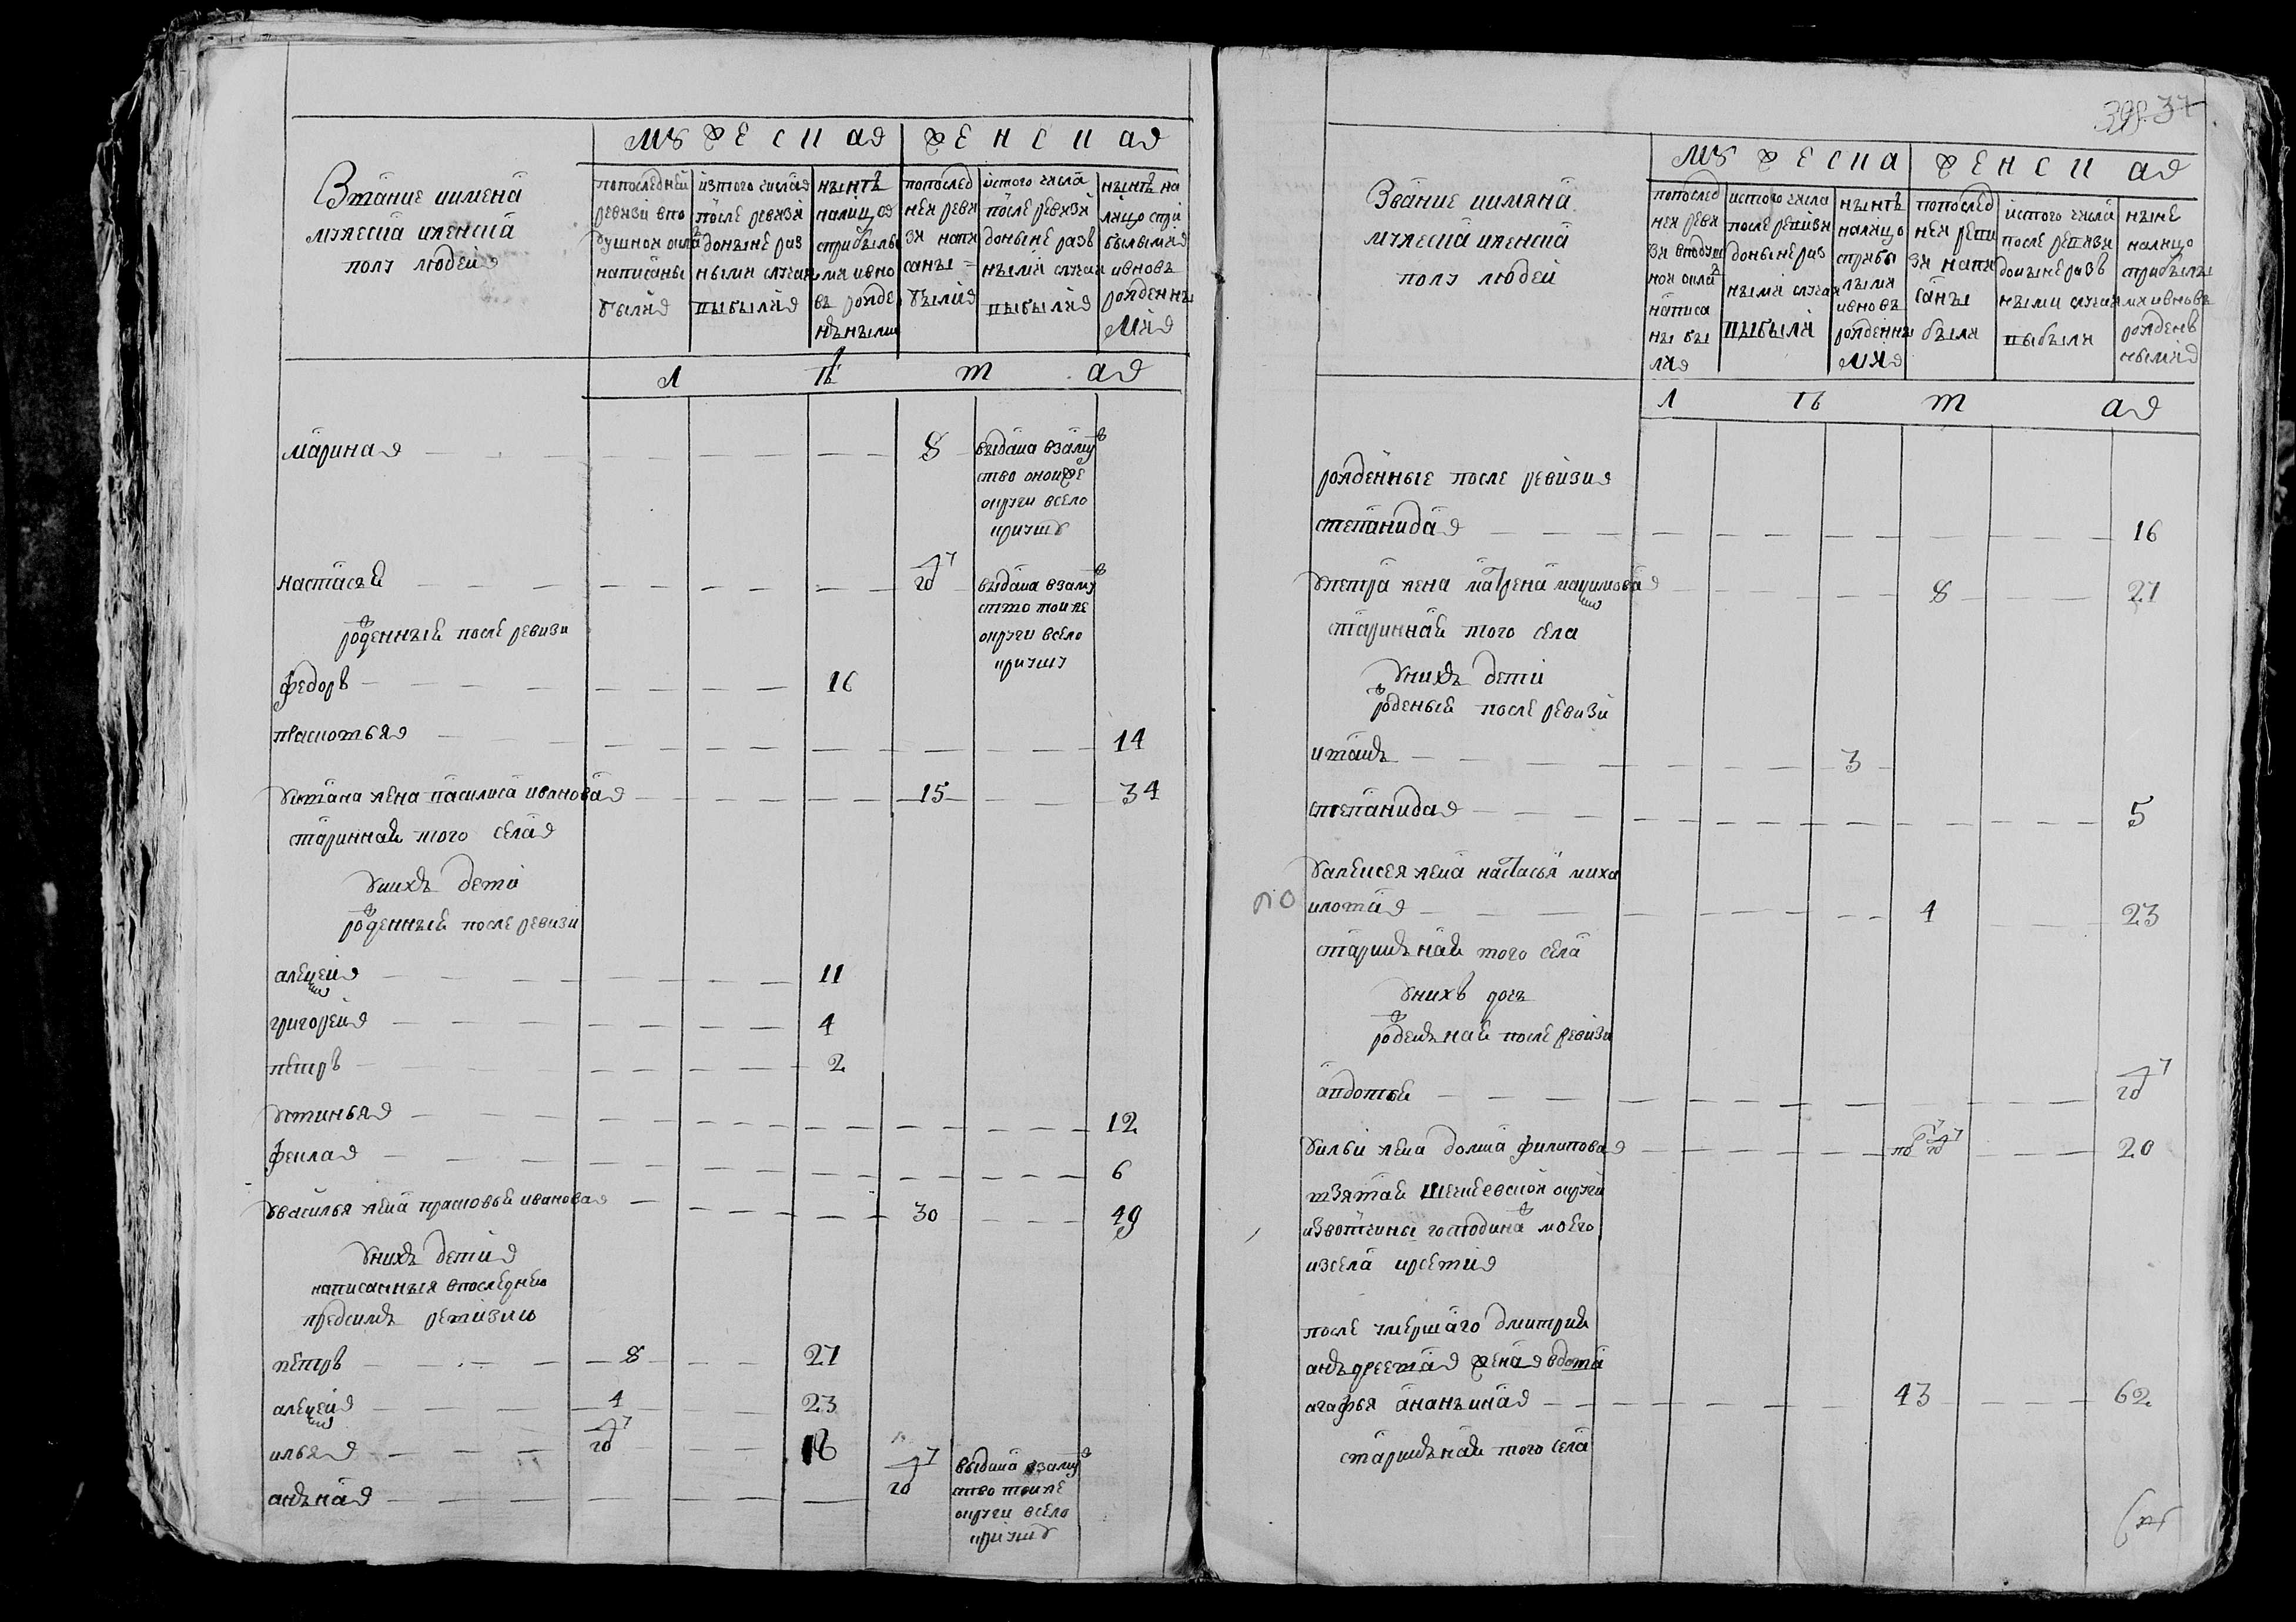 Звание иимена
мужеска иженска
полу людей
мужеска
женская
попоследней ревизи впо душном окладе написаны были
изтого числа после ревизи доныне разными случаи выбыли
ныне налицо сприбылыми ивновь рожденными
попоследней ревизи написаны были
истого числа после ревизи доныне разными случаи выбыли
ныне налицо сприбылыми ивновь рожденными
лета
марина 8 выдана взамуж
ство оной же
округи всело
настасьй выдана взамуж
ство тойже
округи всело
роженный после ревизи
федоръ 16
14
жена василиса иванова 15 34
стариннай того села
униихъ дети
роженный после ревизи
алексей 11
григорей 4
петръ 2
устинья 12
фекла 6
увасилья жена прасковьй иванова 30 49
унихъ дети
написанныя впоследнею
предсимъ ревизию
петръ 8 27
алексей 4 23
илья 18
анъна выдана взамуж
ство тойже
округи всело
37
Звание иимяна
мужеска иженска
полу людей
мужеска
женская
попоследней ревизи вподушной окладе написаны были
истого числа после ревизи доныне разными случаи выбыли
ныне налицо сприбылыми ивновь рожденными
попоследней ревизи написаны были
истого числа после ревизи доныне разными случаи выбыли
ныне налицо сприбылыми ивновь рожденными
лета
рожденные после ревизи
степанида 16
упетра жена матрена максимова 8 27
стариннай того села
унихъ дети
роженый после ревизи
иванъ 3
степанида 5
уалексея жена настасья миха
илова 4 23
стариннай того села
унихъ дочь
роженнай после ревизи
авдотьй
уильи жена домна филипова 20
взятай округи
извотчины господина моего
изсела
после умершаго дмитрия
анъдреева жена вдова
агафья ананьина 43 62
стариннай того села